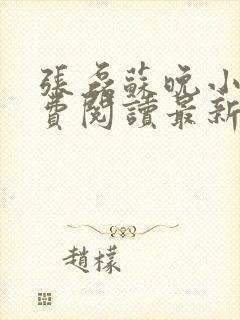 張磊蘇晚小
費閱讀最新
趙檬